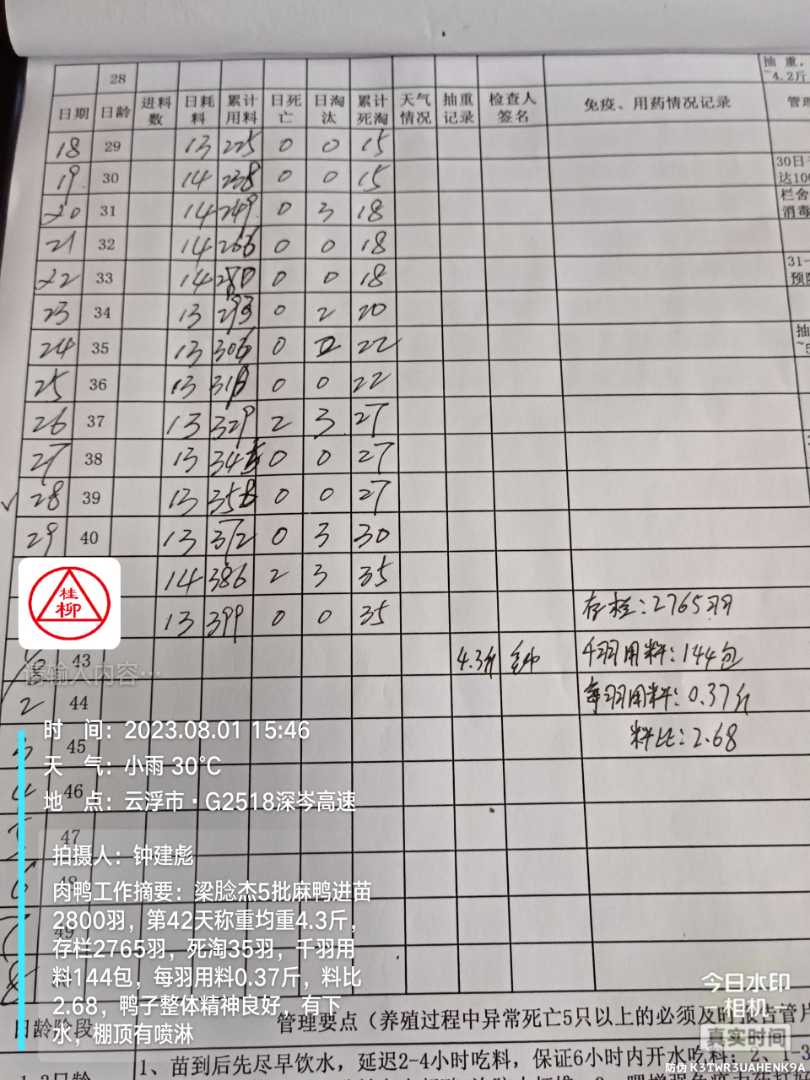 28
抽重，
~4.2斤
日期 日龄 进料数 日耗料 累计用料 日死亡 日淘汰 累计死淘 天气情况 抽重记录 检查人签名 免疫、用药情况记录 管理
18 29 13 225 0 0 15
19 30 14 238 0 0 15
30日
达100
20 31 14 249 0 3 18
栏舍
消毒
21 32 14 266 0 0 18
22 33 14 280 0 0 18
31-
预防
23 34 13 293 0 2 20
24 35 13 306 0 2 22
抽
25 36 13 318 0 0 22
26 37 13 329 2 3 27
27 38 13 345 0 0 27
28 39 13 358 0 0 27
29 40 13 372 0 3 30
14 386 2 3 35
13 399 0 0 35 存栏：2765羽
43 4.3斤 钟 千羽用料：144包
2 44 每羽用料：0.37斤
3 45 料比：2.68
4 46
47
6 48
7 49
8
桂柳
请输入内容…
时 间：2023.08.01 15:46
天 气：小雨 30℃
地 点：云浮市·G2518深岑高速
拍摄人：钟建彪
肉鸭工作摘要：梁脍杰5批麻鸭进苗
2800羽，第42天称重均重4.3斤，
存栏2765羽，死淘35羽，千羽用
料144包，每羽用料0.37斤，料比
2.68，鸭子整体精神良好，有下
水，棚顶有喷淋
今日水印
相机
真实时间
防伪 K3TWR3UAHENK9A
日龄阶段 管理要点（养殖过程中异常死亡5只以上的必须及时报告管
1、苗到后先尽早饮水，延迟2-4小时吃料，保证6小时内开水吃料；2、1-3
1-3日龄